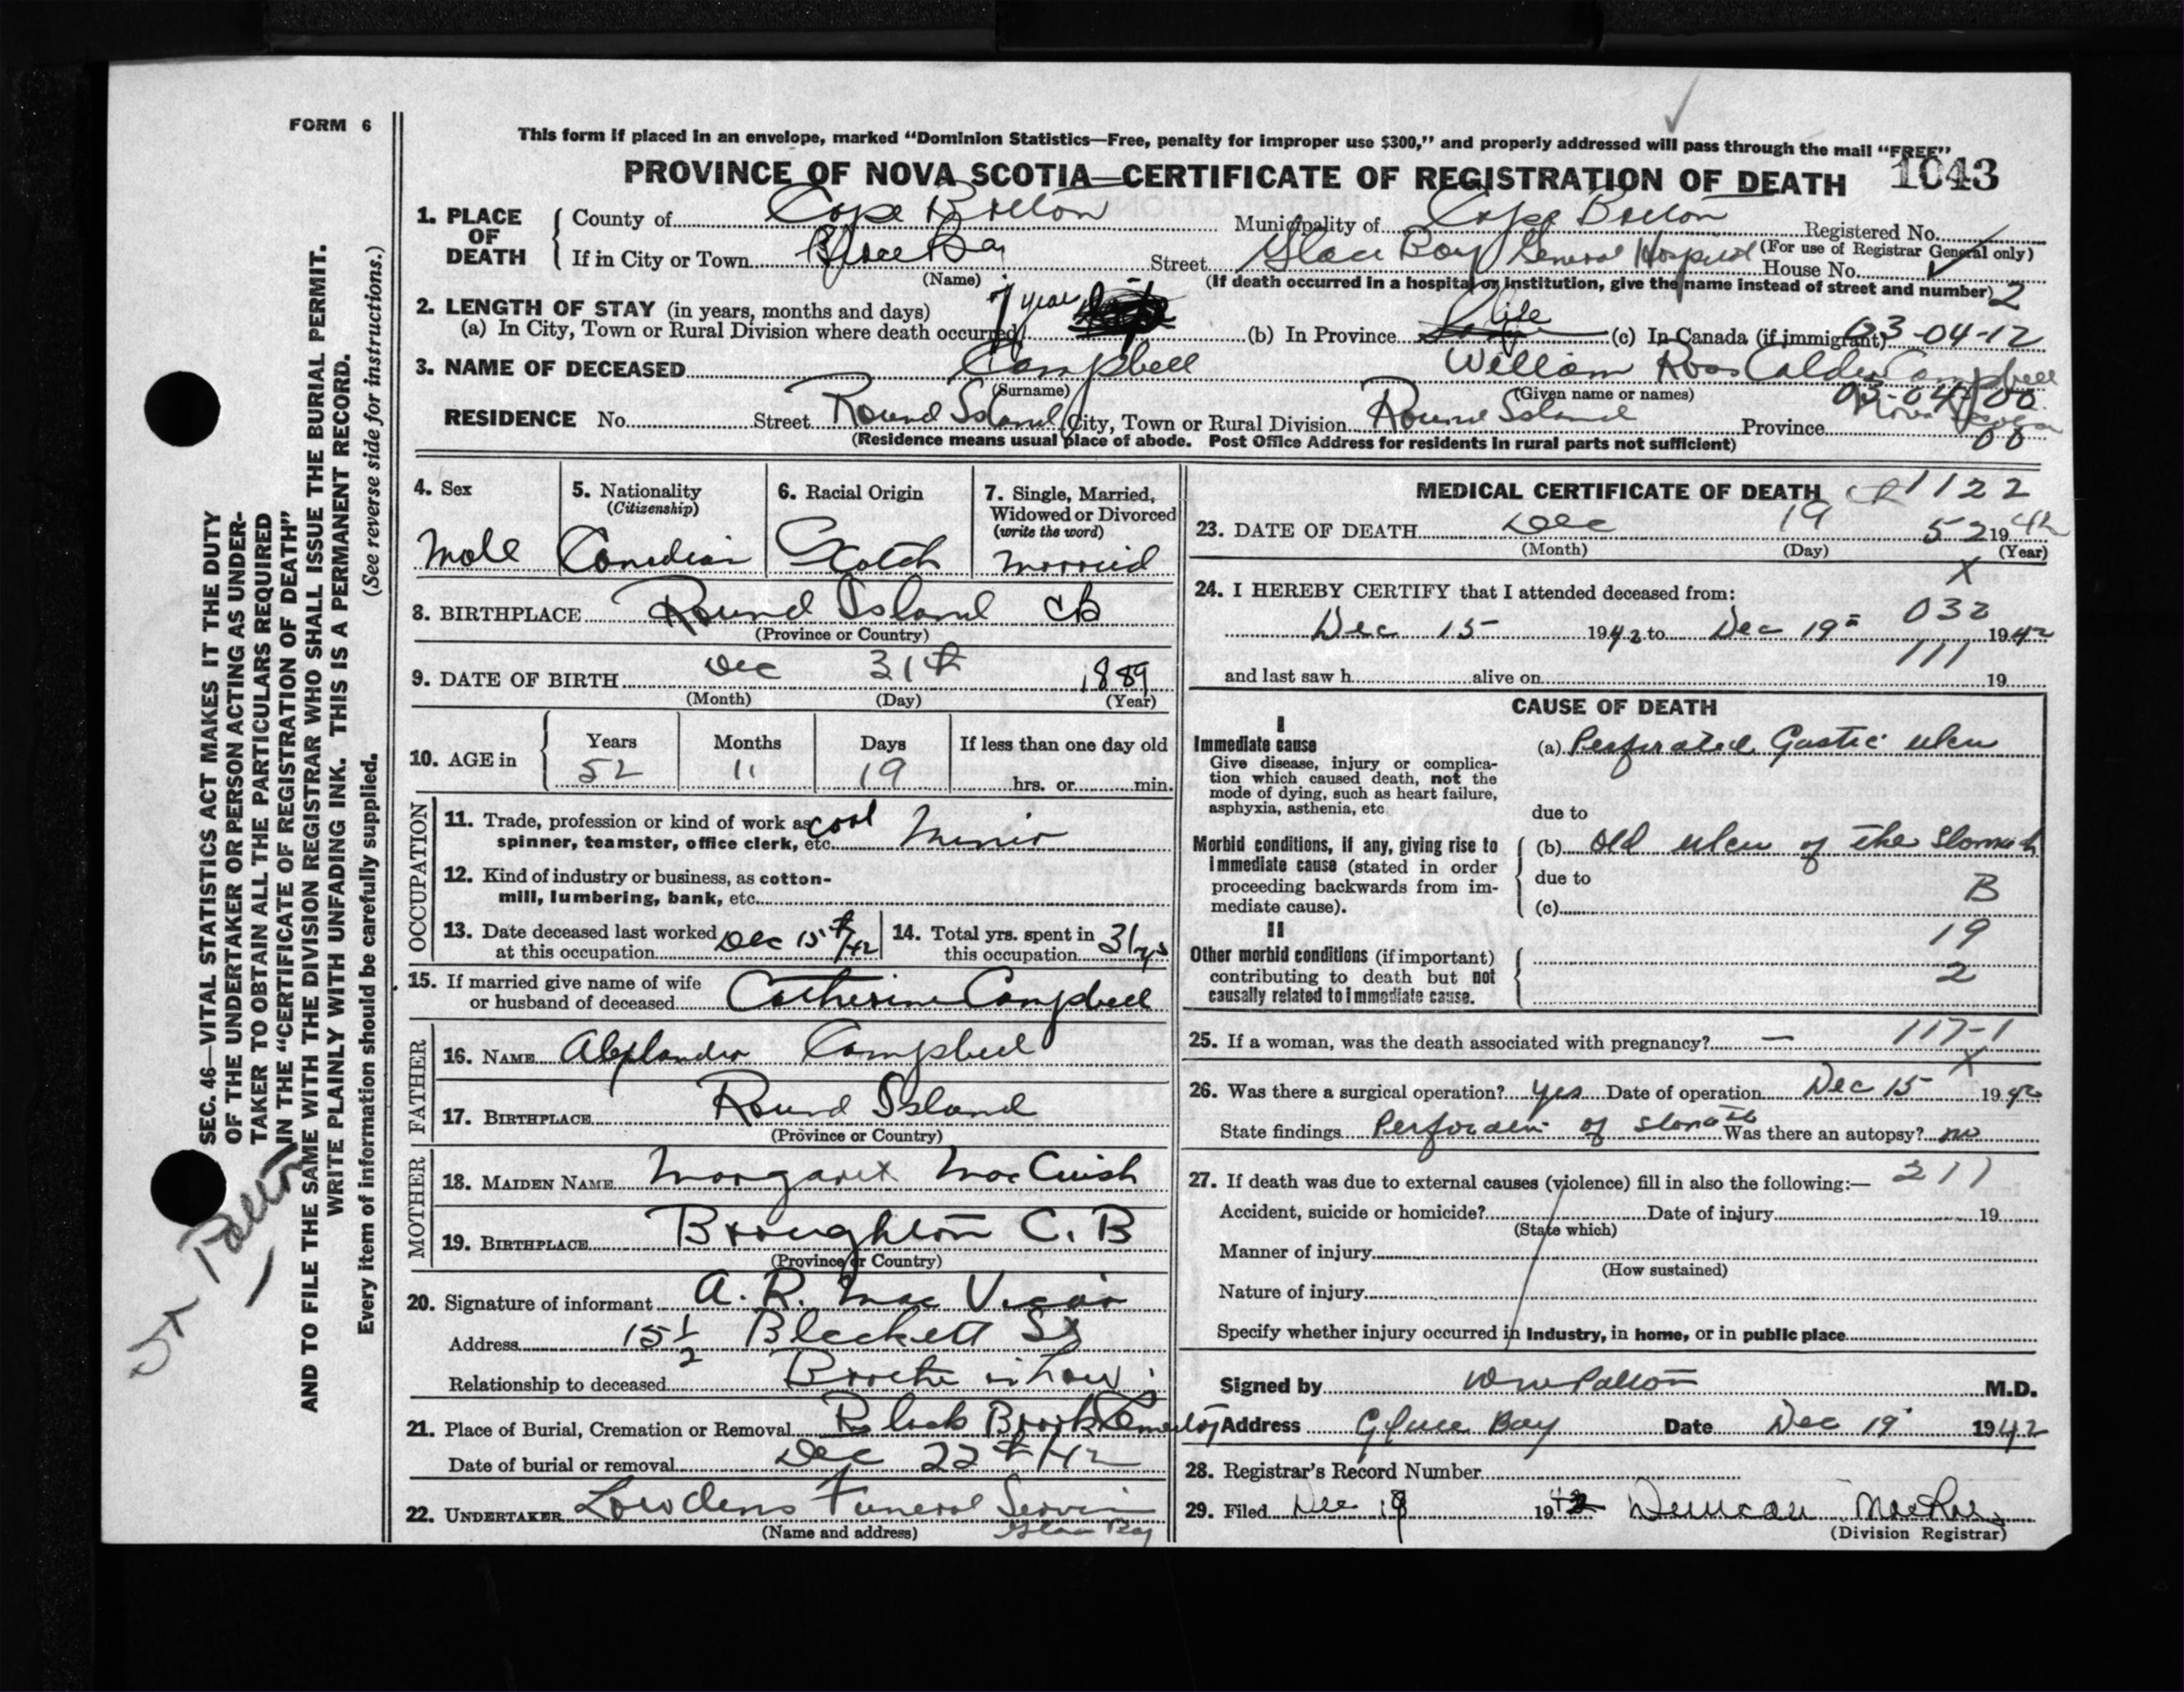 FORM 6
This form if placed in an envelope, marked “Dominion Statistics—Free, penalty for improper use $300,” and properly addressed will pass through the mail “FREE”
PROVINCE OF NOVA SCOTIA—CERTIFICATE OF REGISTRATION OF DEATH 1043
1. PLACE OF DEATH
County of Cape Breton Municipality of Cape Breton Registered No.
(For use of Registrar General only)
If in City or Town Glace Bay Street Glace Bay General Hospital House No.
(Name) (If death occurred in a hospital or institution, give the name instead of street and number) 2
2. LENGTH OF STAY (in years, months and days)
(a) In City, Town or Rural Division where death occurred 7 year (b) In Province life (c) In Canada (if immigrant) 03-04-12
3. NAME OF DECEASED Campbell William Ross Calder Campbell
(Surname) (Given name or names) 03-04-00
RESIDENCE No. Street Round Island City, Town or Rural Division Round Island Province Nova Scotia
(Residence means usual place of abode. Post Office Address for residents in rural parts not sufficient) 00
4. Sex 5. Nationality (Citizenship) 6. Racial Origin 7. Single, Married, Widowed or Divorced (write the word)
Male Canadian Scotch Married
8. BIRTHPLACE Round Island CB
(Province or Country)
9. DATE OF BIRTH Dec 31st 1889
(Month) (Day) (Year)
10. AGE in Years Months Days If less than one day old
52 11 19 hrs. or min.
OCCUPATION
11. Trade, profession or kind of work as coal Miner
spinner, teamster, office clerk, etc.
12. Kind of industry or business, as cotton-
mill, lumbering, bank, etc.
13. Date deceased last worked at this occupation Dec 15th/42 14. Total yrs. spent in this occupation 31 yrs
15. If married give name of wife
or husband of deceased Catherine Campbell
FATHER
16. NAME Alexlander Campbell
17. BIRTHPLACE Round Island
(Province or Country)
MOTHER
18. MAIDEN NAME Margaret MacCuish
19. BIRTHPLACE Broughton C. B
(Province or Country)
20. Signature of informant A. R. Mac Vicar
Address 15 1/2 Blackett St
Relationship to deceased Brother in Law
21. Place of Burial, Cremation or Removal Black Brook Cemetery
Date of burial or removal Dec 22nd/42
22. UNDERTAKER Lowdens Funeral Service
(Name and address) Glace Bay
MEDICAL CERTIFICATE OF DEATH 1122
23. DATE OF DEATH Dec 19 52 1942
(Month) (Day) (Year)
X
24. I HEREBY CERTIFY that I attended deceased from:
032
Dec 15 1942 to Dec 19th 1942
111
and last saw h alive on 19
CAUSE OF DEATH
I
Immediate cause (a) Perforated Gastic ulcer
Give disease, injury or complica-
tion which caused death, not the
mode of dying, such as heart failure,
asphyxia, asthenia, etc.
due to
Morbid conditions, if any, giving rise to (b) Old ulcer of the Stomach
immediate cause (stated in order due to
proceeding backwards from im- B
mediate cause). (c)
II 19
Other morbid conditions (if important)
contributing to death but not 2
causally related to immediate cause.
25. If a woman, was the death associated with pregnancy? — 117-1
X
26. Was there a surgical operation? yes Date of operation Dec 15 1942
State findings Perforation of stomach Was there an autopsy? no
27. If death was due to external causes (violence) fill in also the following:— 211
Accident, suicide or homicide? Date of injury 19
(State which)
Manner of injury
(How sustained)
Nature of injury
Specify whether injury occurred in Industry, in home, or in public place
Signed by Patton M.D.
Address Glace Bay Date Dec 19 1942
28. Registrar's Record Number
29. Filed Dec 19 1942 Duncan MacRae
(Division Registrar)
SEC. 46—VITAL STATISTICS ACT MAKES IT THE DUTY
OF THE UNDERTAKER OR PERSON ACTING AS UNDER-
TAKER TO OBTAIN ALL THE PARTICULARS REQUIRED
IN THE “CERTIFICATE OF REGISTRATION OF DEATH”
AND TO FILE THE SAME WITH THE DIVISION REGISTRAR WHO SHALL ISSUE THE BURIAL PERMIT.
WRITE PLAINLY WITH UNFADING INK. THIS IS A PERMANENT RECORD.
Every item of information should be carefully supplied. (See reverse side for instructions.)
Patton